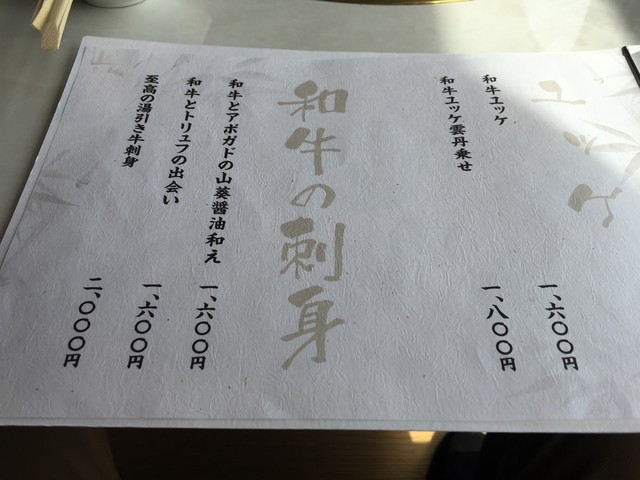 ユッケ
和牛ユッケ 一、六〇〇円
和牛ユッケ雲丹乗せ 一、八〇〇円
和牛の刺身
和牛とアボガドの山葵醤油和え 一、六〇〇円
和牛とトリュフの出会い 一、六〇〇円
至高の湯引き牛刺身 二、〇〇〇円